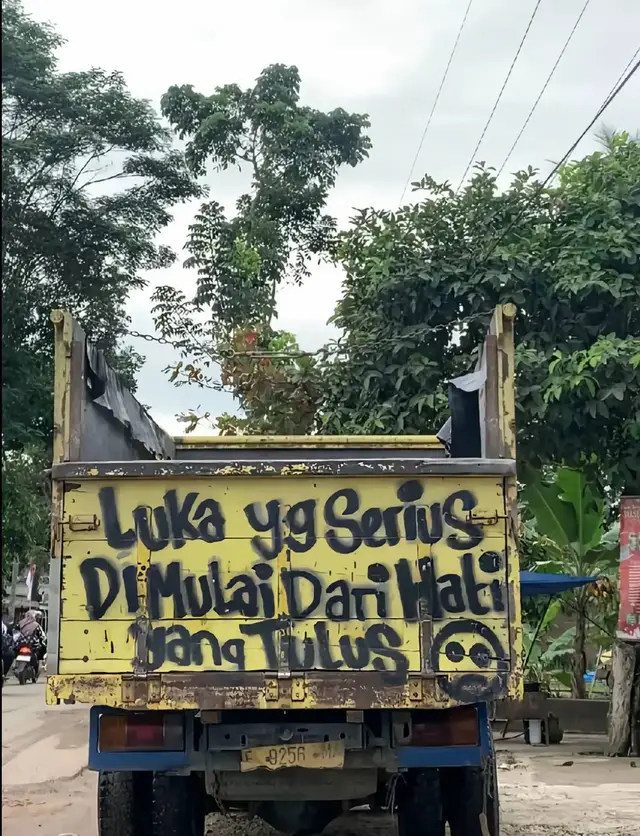 Luka yg Serius
DiMulai Dari Hati
yang Tulus